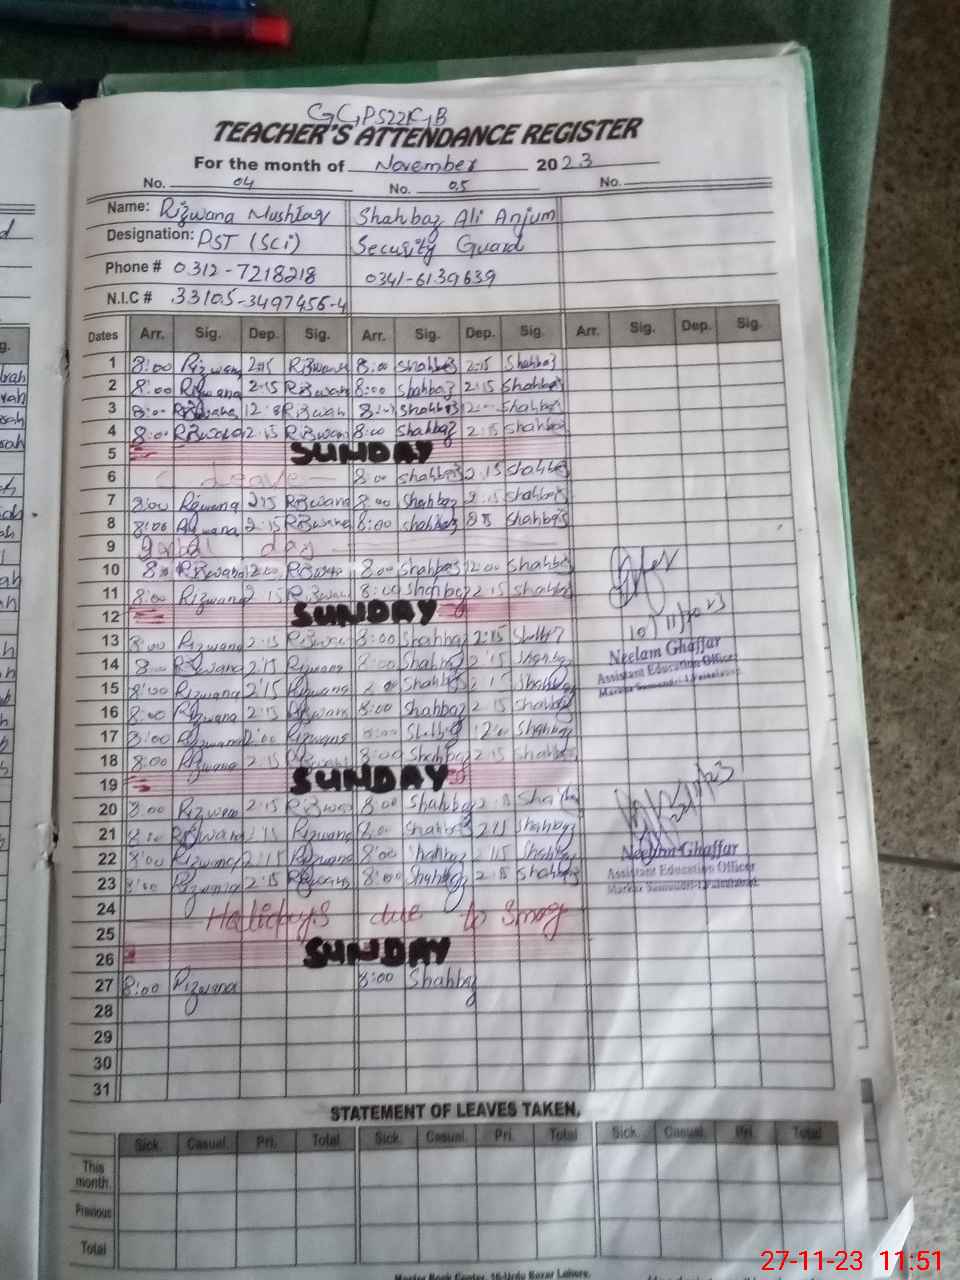 GGPS22KGB
TEACHER'S ATTENDANCE REGISTER
For the month of November 2023
No. 04 No. 05 No.
Name: Rizwana Mushtaq Shahbaz Ali Anjum
Designation: PST (Sci) Security Guard
Phone # 0312-7218218 0341-6139639
N.I.C # 33105-3497456-4
Dates Arr. Sig. Dep. Sig. Arr. Sig. Dep. Sig. Arr. Sig. Dep. Sig.
1 8:00 Rizwana 2:15 Rizwana 8:00 Shahbaz 2:15 Shahbaz
2 8:00 Rizwana 2:15 Rizwana 8:00 Shahbaz 2:15 Shahbaz
3 8:00 Rizwana Rizwan Shahbaz Shahbaz
4 8:00 Rizwana 2:15 Rizwan 8:00 Shahbaz 2:15 Shahbaz
5 SUNDAY
6 Leave 8:00 Shahbaz 2:15 Shahbaz
7 8:00 Rizwana 2:15 Rizwana 8:00 Shahbaz 2:15 Shahbaz
8 8:00 Rizwana 2:15 Rizwana 8:00 Shahbaz Shahbaz
9 day
10 Rizwana 12:00 Rizwana 8:00 Shahbaz 12:00 Shahbaz
11 8:00 Rizwana 2:15 Rizwana 8:00 Shahbaz 2:15 Shahbaz
12 SUNDAY
10/11/2023
13 8:00 Rizwana 2:15 Rizwana 8:00 Shahbaz 2:15 Shahbaz
Neelam Ghaffar
14 8:00 Rizwana 2:15 Rizwana 8:00 Shahbaz 2:15 Shahbaz
Assistant Education Officer
15 8:00 Rizwana 2:15 Rizwana Shahbaz 2:15 Shahbaz
Markaz Samundri-I, Faisalabad
16 8:00 Rizwana 2:15 Rizwana 8:00 Shahbaz 2:15 Shahbaz
17 8:00 Rizwana Rizwana 8:00 Shahbaz Shahbaz
18 8:00 Rizwana 2:15 Rizwana 8:00 Shahbaz 2:15 Shahbaz
19 SUNDAY
20 8:00 Rizwana 2:15 Rizwana 8:00 Shahbaz Shahbaz
21 8:00 Rizwana 2:15 Rizwana 8:00 Shahbaz 2:15 Shahbaz
22 8:00 Rizwana 2:15 Rizwana 8:00 Shahbaz 2:15 Shahbaz
Neelam Ghaffar
Assistant Education Officer
23 8:00 Rizwana 2:15 Rizwana 8:00 Shahbaz 2:15 Shahbaz
Markaz Samundri-I, Faisalabad
24 Holidays due to smog
25
26 SUNDAY
27 8:00 Rizwana 8:00 Shahbaz
28
29
30
31
STATEMENT OF LEAVES TAKEN.
Sick. Casual. Pri. Total Sick. Casual. Pri. Total Sick. Casual. Pri. Total
This month.
Previous
Total
Master Book Center, 16-Urdu Bazar Lahore.
27-11-23 11:51